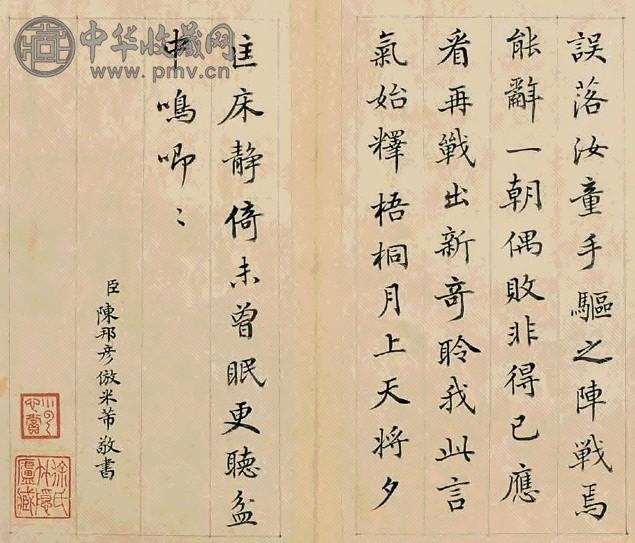 誤落汝童手驅之陣戰焉
能辭一朝偶敗非得已應
看再戰出新奇聆我此言
氣始釋梧桐月上天將夕
匡床静倚未曾眠更聽盆
中鳴唧〻
臣陳邦彦倣米芾敬書
徐氏
小隱
盧藏
中华收藏网
www.pmv.cn